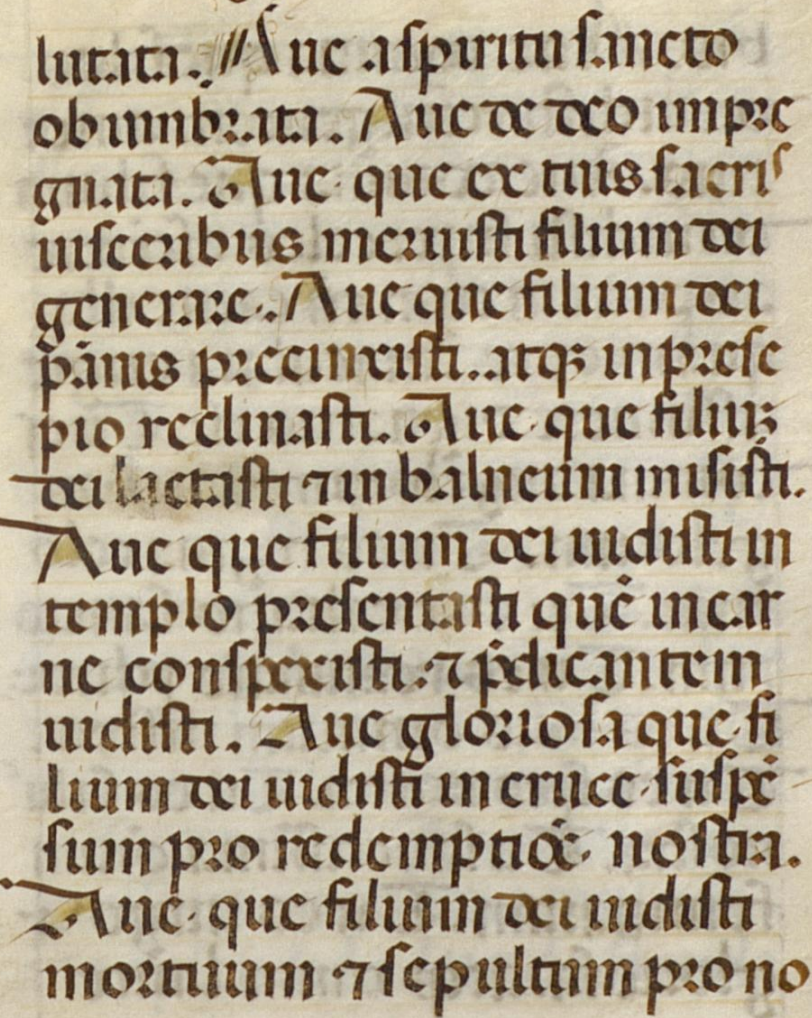 lutata. Aue a spiritu sancto
obumbrata. Aue de deo impre
gnata. Aue que ex tuis sacris
uisceribus meruisti filium dei
generare. Aue que filium dei
pānis precinxisti. atqꝫ in prese
pio reclinasti. Aue que filiuꝫ
dei lactasti ⁊ in balneum misisti.
Aue que filium dei uidisti in
templo presentasti quē in car
ne conspexisti. ⁊ p̄dicantem
uidisti. Aue gloriosa que fi
lium dei uidisti in cruce suspē
sum pro redemptiōe nostra.
Aue que filium dei uidisti
mortuum ⁊ sepultum pro no